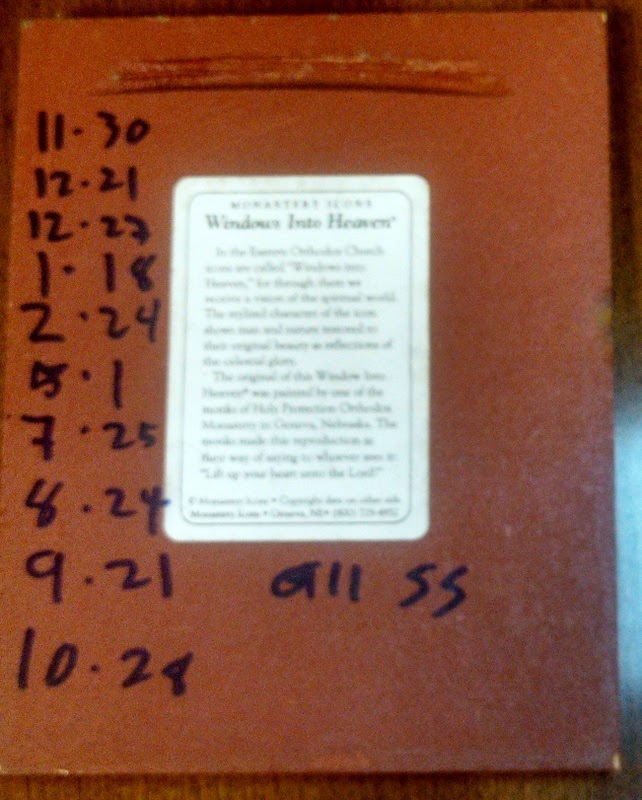 11·30
12·21
12·27
1·18
2·24
5·1
7·25
8·24
9·21
10·28
all SS
MONASTERY ICONS
Windows Into Heaven®
In the Eastern Orthodox Church
icons are called "Windows into
Heaven," for through them we
receive a vision of the spiritual world.
The stylized character of the icon
shows man and nature restored to
their original beauty as reflections of
the celestial glory.
The original of this Window Into
Heaven® was painted by one of the
monks of Holy Protection Orthodox
Monastery in Geneva, Nebraska. The
monks made this reproduction as
their way of saying to whoever sees it:
"Lift up your heart unto the Lord!"
© Monastery Icons • Copyright date on other side
Monastery Icons • Geneva, NE • (800)